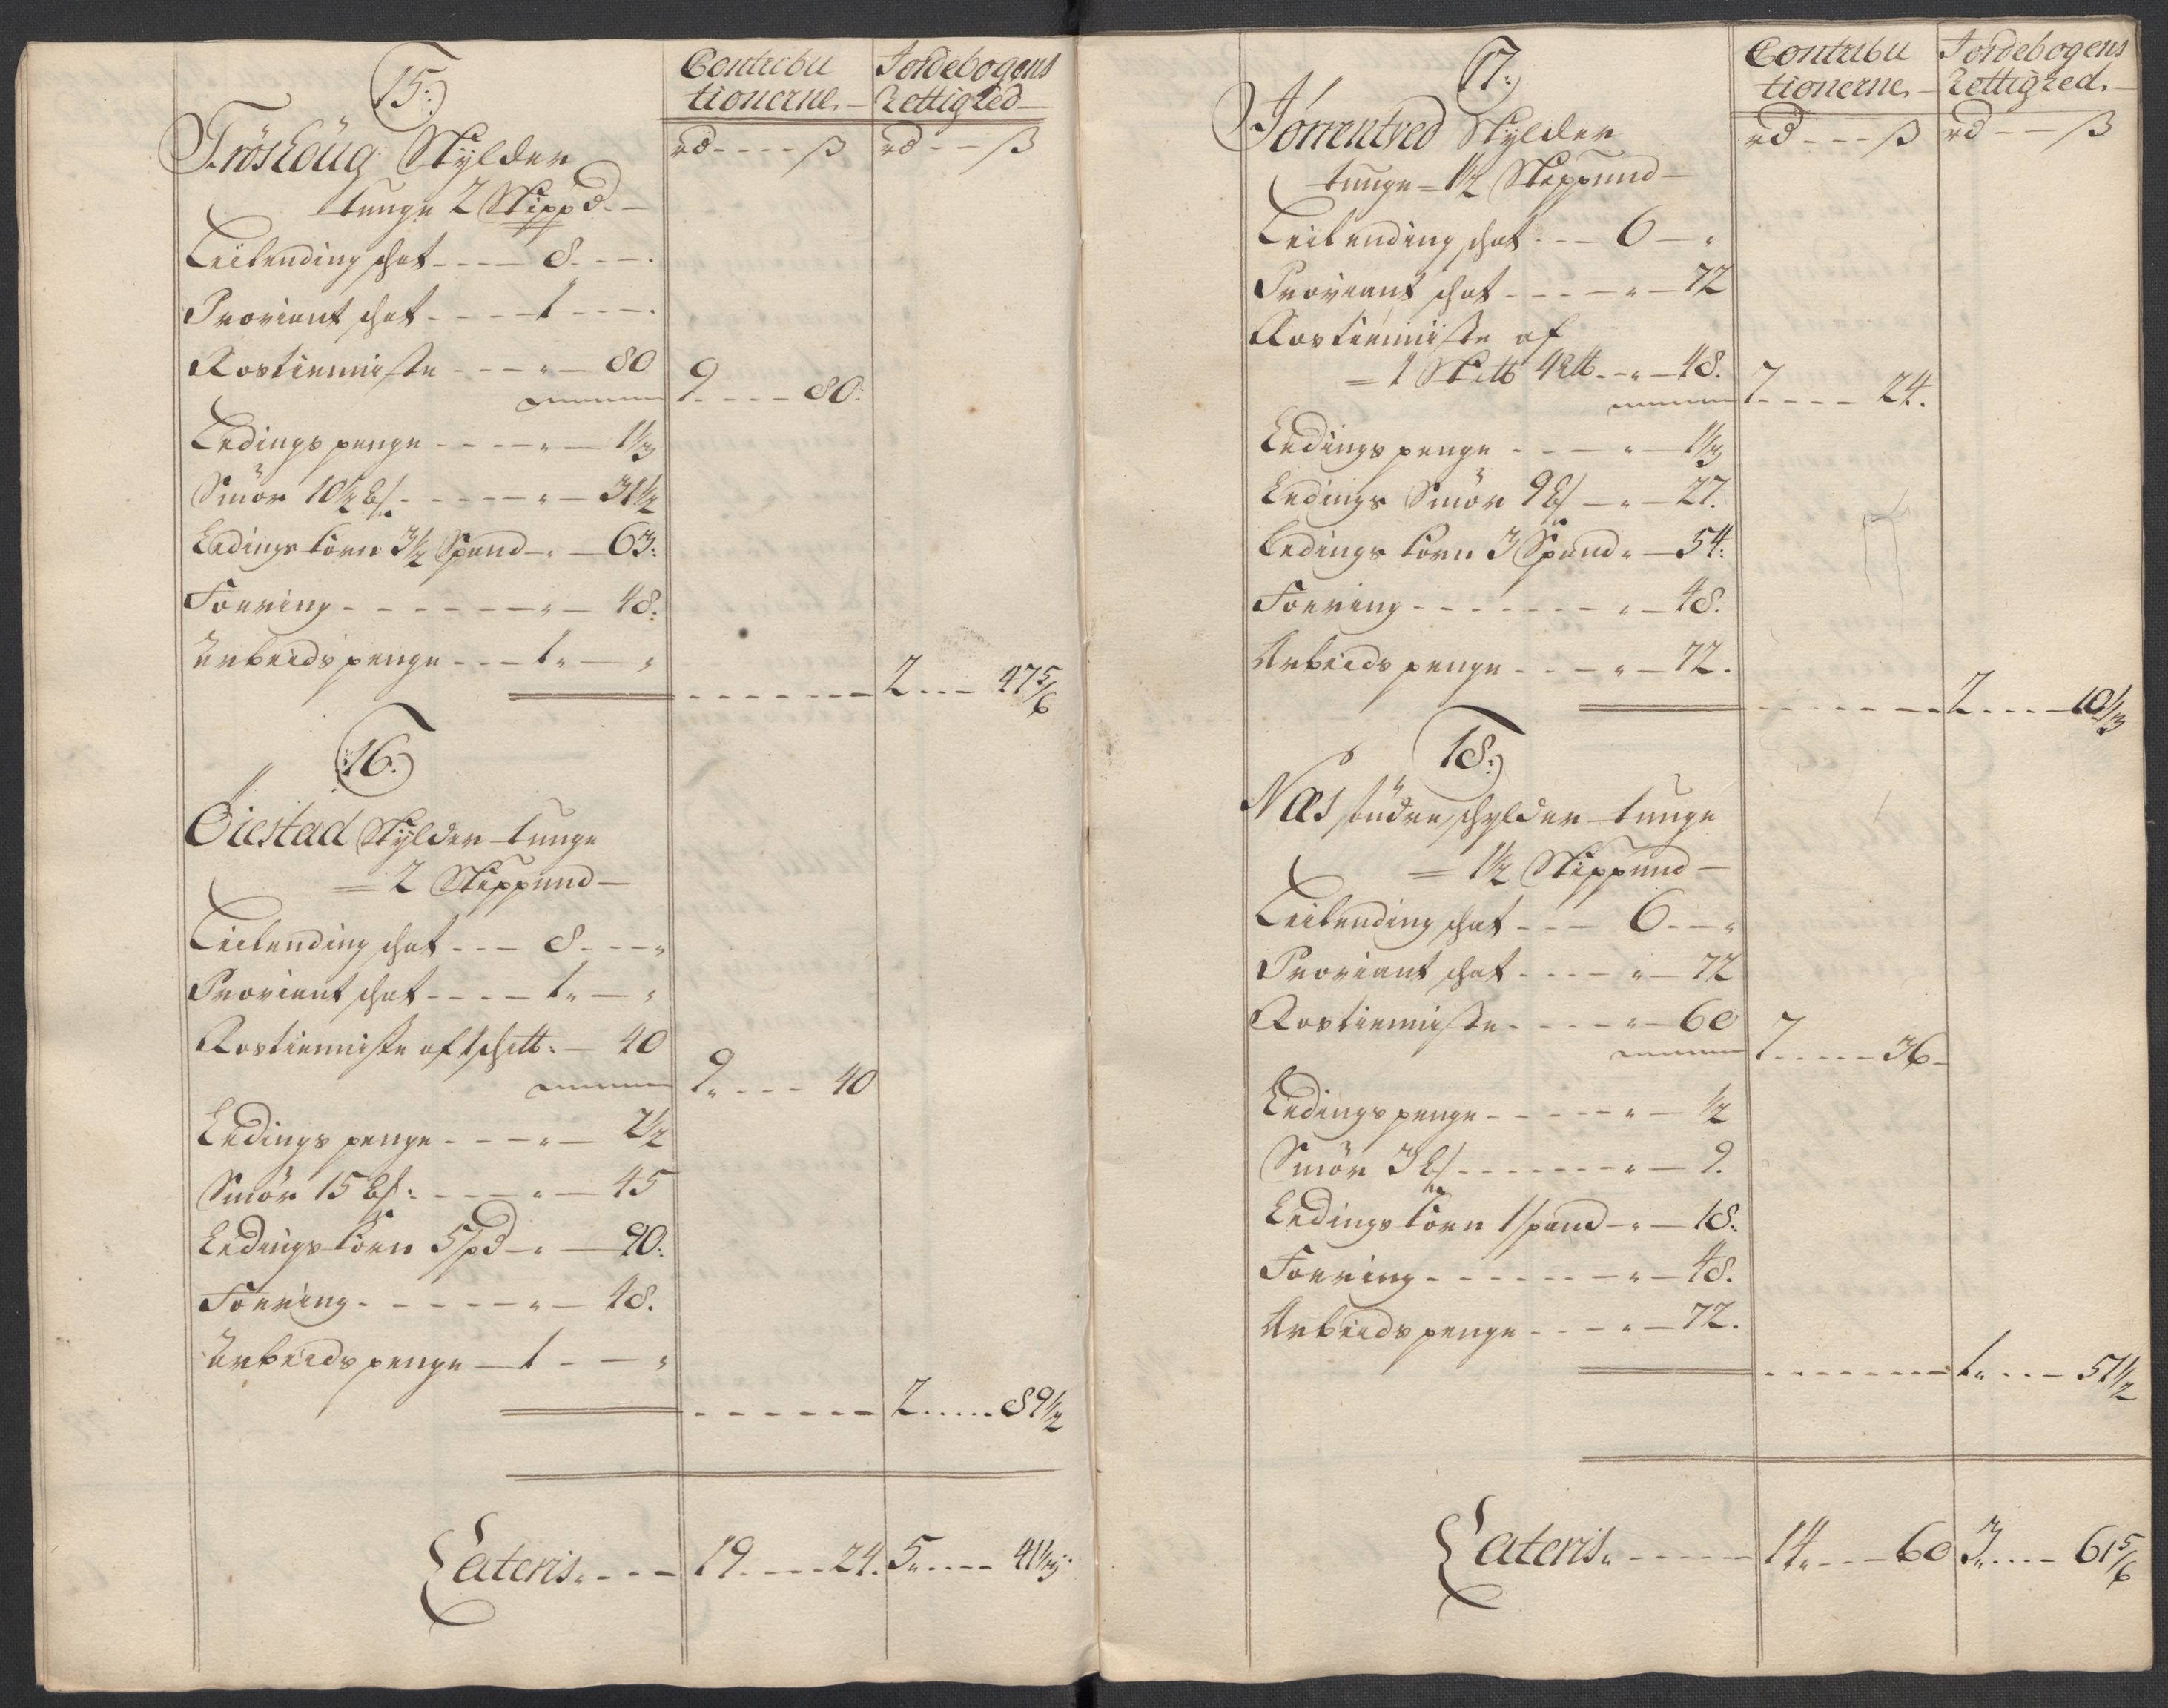 15:
Contribu
tionerne.
Jordebogens
Rettighed
rd ß rd ß
Fröshoug Skylder
tunge 2 Skippd.
Leilending schat 8
Proviant schat 1
Rostienniste " 80
9 80:
Ledings penge " 1 1/3
Smör 10 1/2 " 31 1/2
Ledings korn 3 1/2 Spand " 63:
Foering " 48:
Arbeids penge 1 "
2 47 5/6
16:
Öiestad Skylder tunge
= 2 Skippund
Leilending schat 8 "
Proviant schat 1 "
Rostienniste af 1 " 40
9 " 40
Ledings penge " 2 1/2
Smör 15 " 45
Ledings korn 5 spd " 90:
Foering " 48.
Arbeids penge 1 "
2 89 1/2
Lateris. 19 24. 5 " 41 1/3:
17:
Contribu
tionerne.
Jordebogens
Rettighed.
rd ß rd ß
Skylder
tunge = 1 1/2 Skippund
Leilending schat 6 "
Proviant schat " 72
Rostienniste af
= 1 " 48.
7 24.
Ledings penge " 1 1/3
Ledings Smör 9 " 27.
Ledings korn 3 Spand " 54:
Foering " 48.
Arbeids penge " 72.
2 10 1/3
18:
Næs südre schylder tunge
= 1 1/2 Skippund
Leilending schat 6 "
Proviant schat " 72
Rostienniste " 60
7 36
Ledings penge " 1/2
Smör 3 " 9.
Ledings korn 1 spand " 18:
Foering " 48.
Arbeids penge " 72.
1 " 51 1/2
Lateris. 14 " 60 3 " 61 5/6